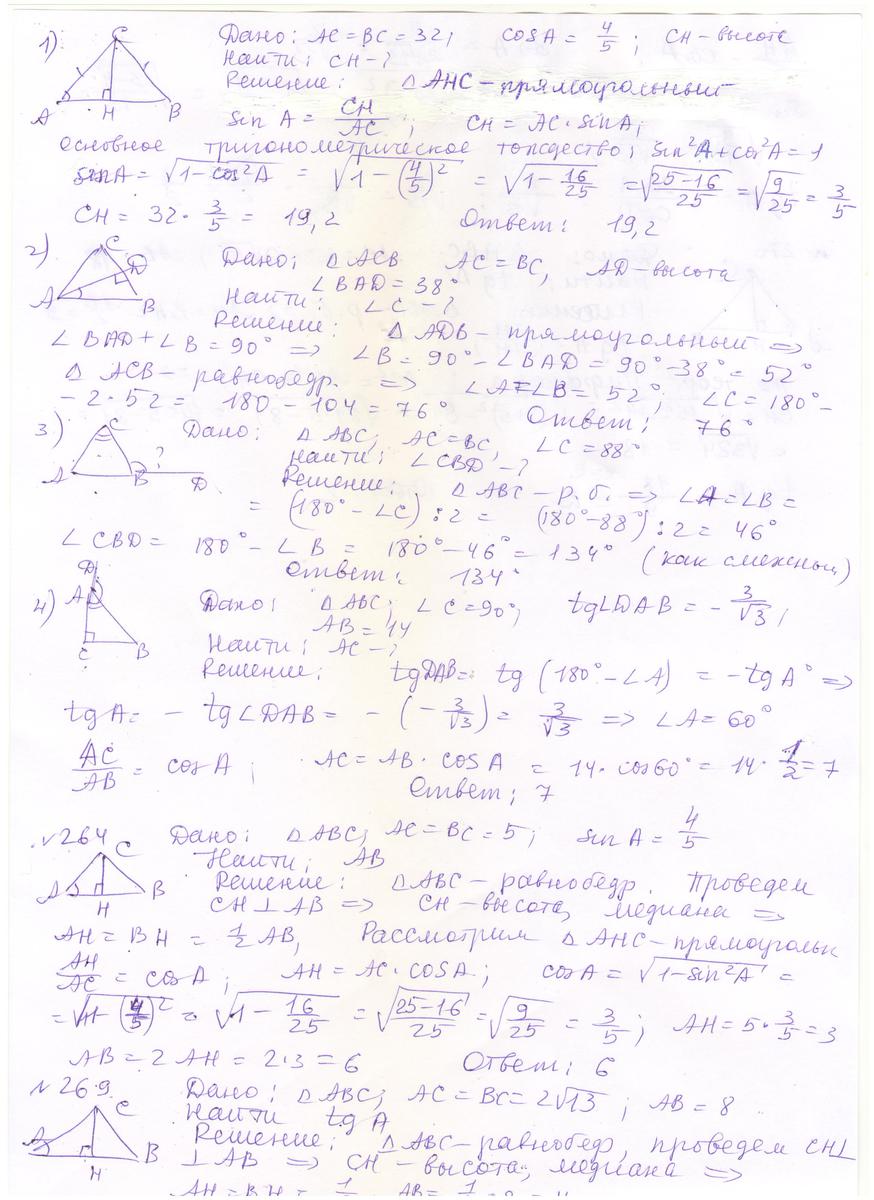 1) Дано: AC = BC = 32; cos A = 4/5; CH – высота
Найти: CH – ?
Решение: △ AHC – прямоугольный
sin A = CH/AC; CH = AC · sin A;
Основное тригонометрическое тождество; sin²A + cos²A = 1
sin A = √(1 – cos²A) = √(1 – (4/5)²) = √(1 – 16/25) = √((25–16)/25) = √(9/25) = 3/5
CH = 32 · 3/5 = 19,2 Ответ: 19,2
2) Дано; △ ACB AC = BC, AD – высота
∠ BAD = 38°
Найти: ∠ C – ?
Решение: △ ADB – прямоугольный =>
∠ BAD + ∠ B = 90° => ∠ B = 90° – ∠ BAD = 90° – 38° = 52°
△ ACB – равнобедр. => ∠ A = ∠ B = 52°, ∠ C = 180° –
– 2 · 52 = 180 – 104 = 76° Ответ: 76°
3.) Дано: △ ABC; AC = BC, ∠ C = 88°
Найти: ∠ CBD – ?
Решение: △ ABC – р.б. => ∠ A = ∠ B =
= (180° – ∠ C) : 2 = (180° – 88°) : 2 = 46°
∠ CBD = 180° – ∠ B = 180° – 46° = 134° (как смежный)
Ответ: 134°
4) Дано: △ ABC; ∠ C = 90°; tg ∠ DAB = – 3/√3;
AB = 14
Найти: AC – ?
Решение: tg DAB = tg (180° – ∠ A) = – tg A° =>
tg A = – tg ∠ DAB = – (– 3/√3) = 3/√3 => ∠ A = 60°
AC/AB = cos A; AC = AB · cos A = 14 · cos 60° = 14 · 1/2 = 7
Ответ; 7
№ 264 Дано: △ ABC; AC = BC = 5; sin A = 4/5
Найти; AB
Решение: △ ABC – равнобедр. Проведем
CH ⊥ AB => CH – высота, медиана =>
AH = BH = 1/2 AB, Рассмотрим △ AHC – прямоугольн
AH/AC = cos A; AH = AC · cos A; cos A = √(1 – sin²A) =
= √(1 – (4/5)²) = √(1 – 16/25) = √((25–16)/25) = √(9/25) = 3/5; AH = 5 · 3/5 = 3
AB = 2 AH = 2 · 3 = 6 Ответ; 6
№ 269 Дано; △ ABC; AC = BC = 2√13; AB = 8
Найти tg A
Решение: △ ABC – равнобедр, проведем CH ⊥
⊥ AB => CH – высота, медиана =>
AH = BH = 1/2 AB = 1/2